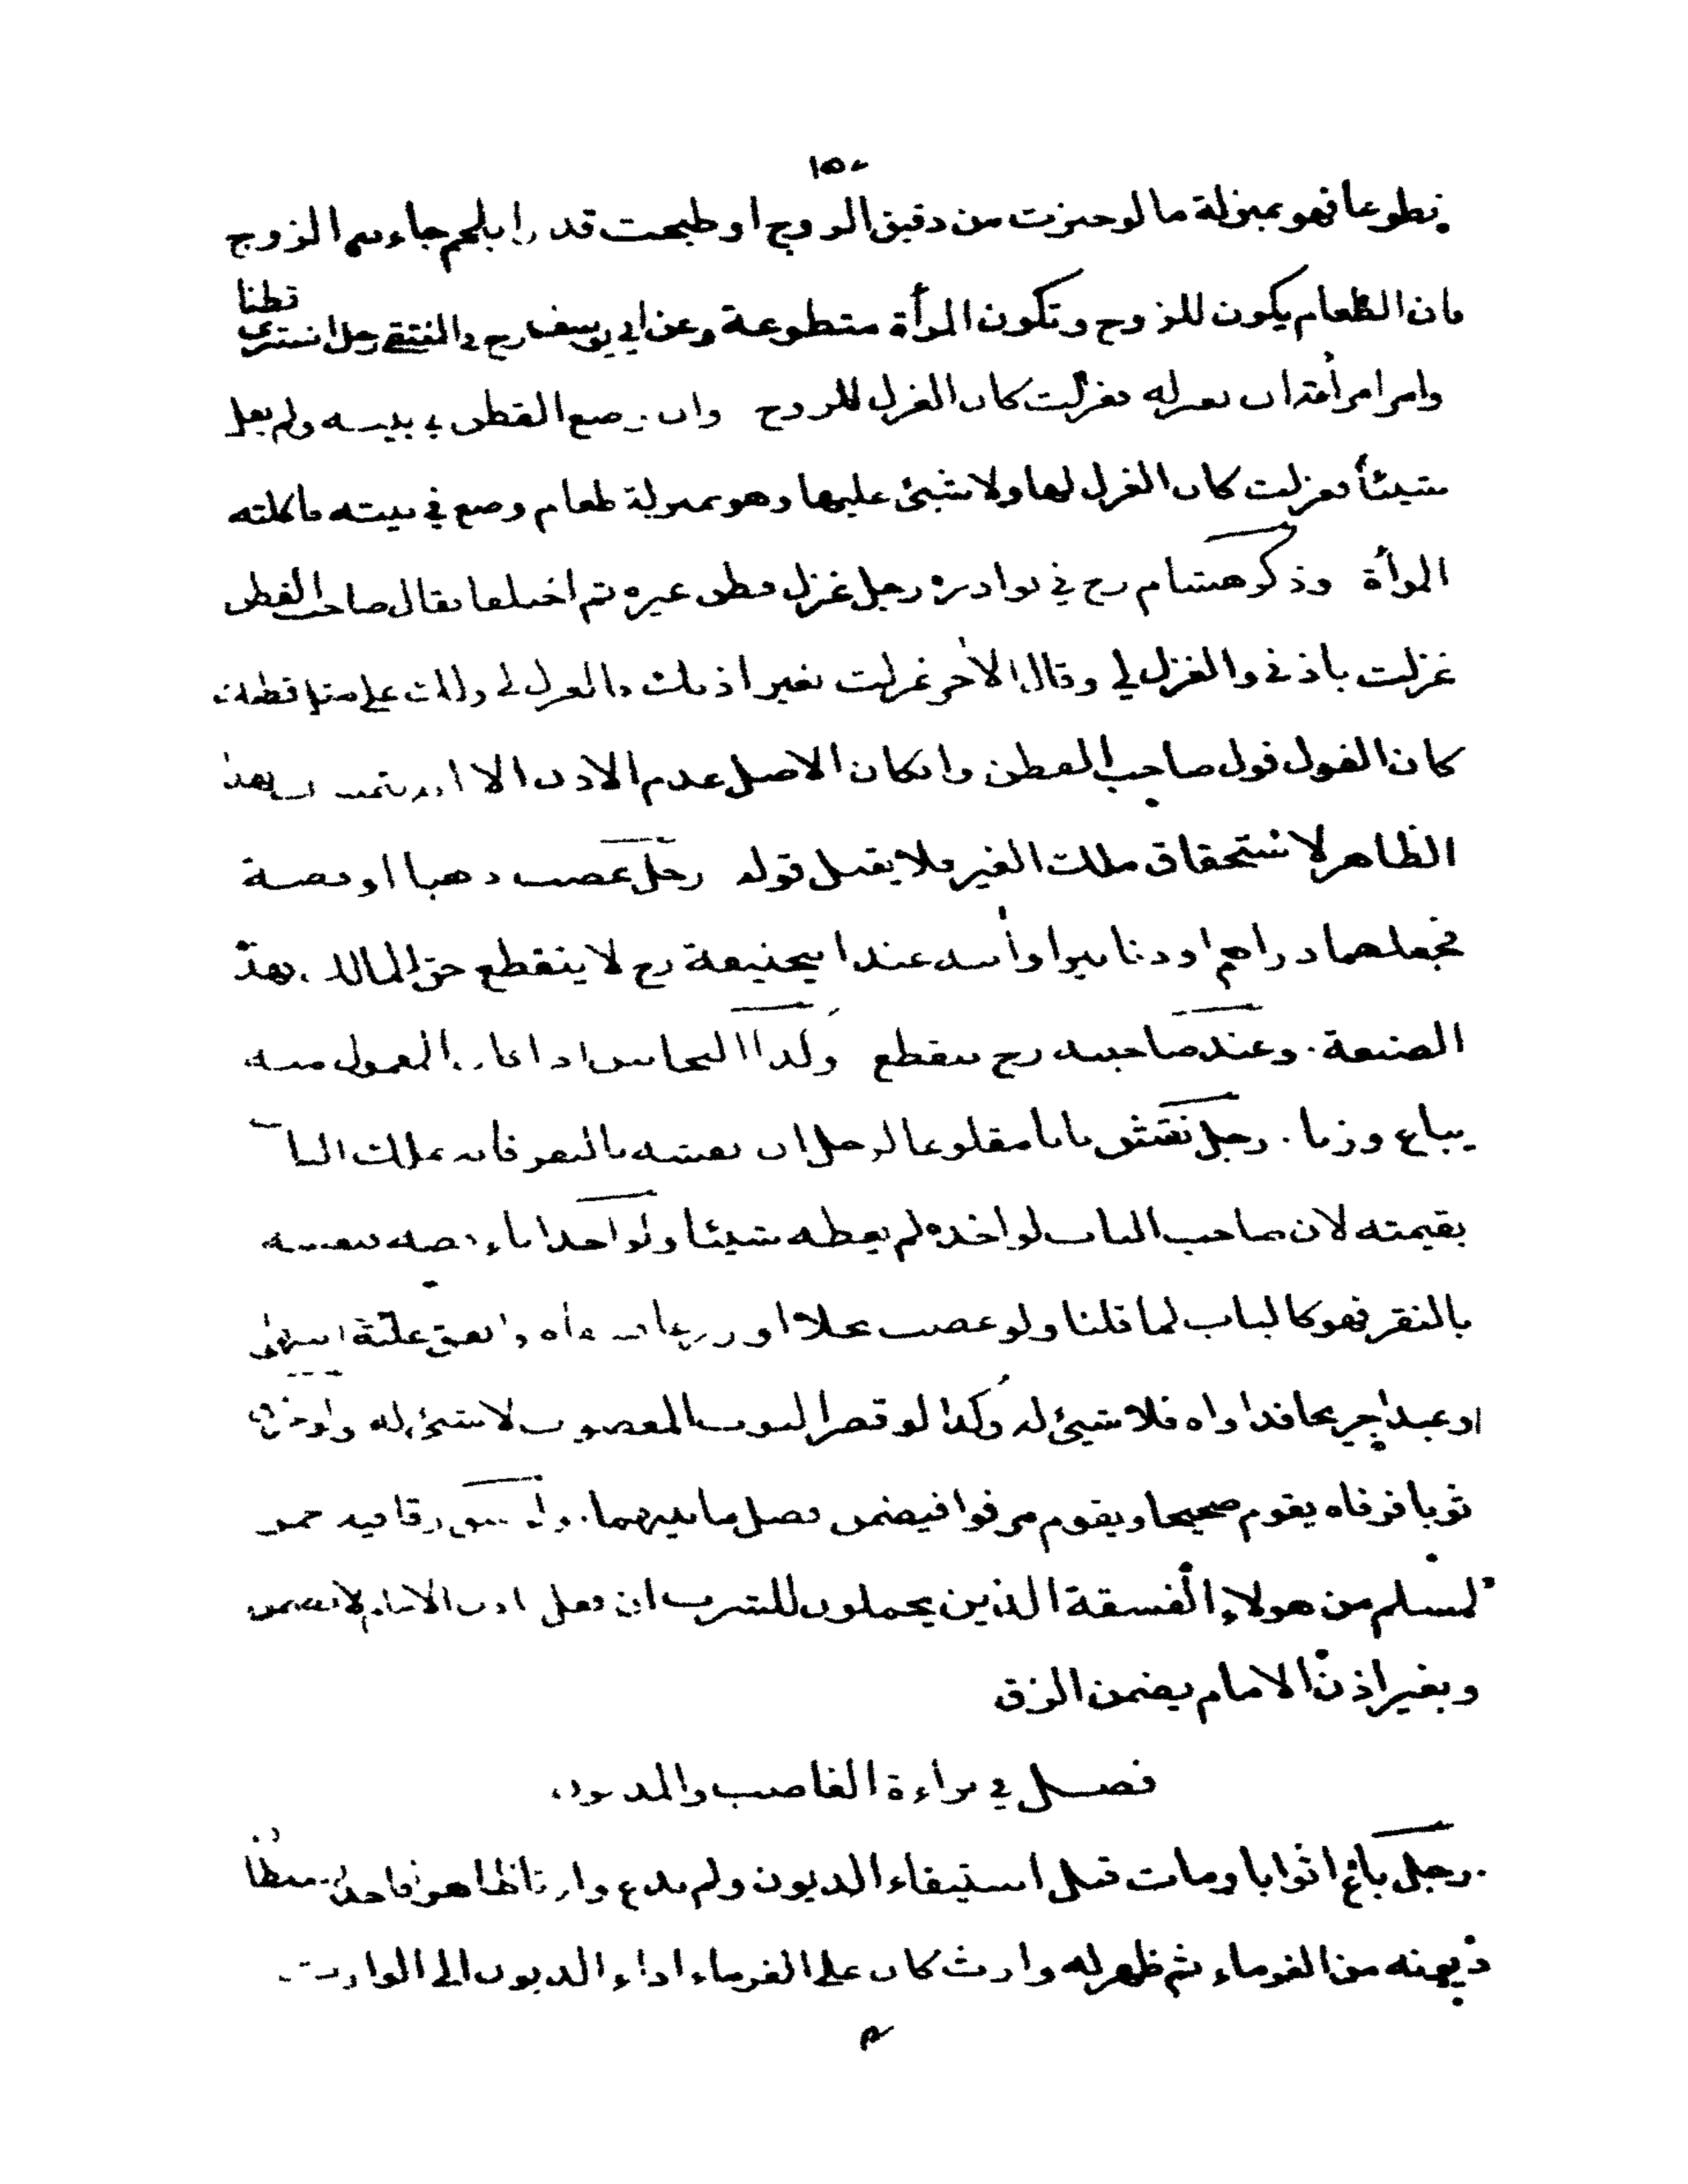 تطوعا فهو بمنزلة ما لو خبزت من دقيق الزوج او طبخت قدرا بلحم جاء به الزوج
فان الطعام يكون للزوج وتكون المرأة متطوعة وعن ابي يوسف رح في المنتقى رجل اشترى قطنا
وامر امرأته ان تغزله فغزلت كان الغزل للزوج وان وضع القطن في بيته ولم يقل
شيئا فغزلت كان الغزل لها ولا شيئ عليها وهو بمنزلة طعام وضع في بيته فاكلته
المرأة وذكر هشام رح في نوادره رجل غزل قطن غيره ثم اختلفا فقال صاحب القطن
غزلت باذني والغزل لي وقال الاخر غزلت بغير اذنك فالغزل لي ولك علي مثل قطنك
كان القول قول صاحب القطن وان كان الاصل عدم الاذن الا انه بهذا
الظاهر لاستحقاق ملك الغير فلا يقبل قوله رجل غصب ذهبا او فضة
فجعلهما دراهم او دنانير او آنية عند ابيحنيفة رح لا ينقطع حق المالك بهذه
الصنعة وعند صاحبيه رح ينقطع وكذا النحاس اذا كان المعمول منه
يباع وزنا رجل نقش بابا مقلوعا لرجل ان نقشه بالنقر فانه يملك الباب
بقيمته لان صاحب الباب لو اخذه لم يعطه شيئا ولو اخذ اناء فضة فنقشه
بالنقر فهو كالباب لما قلنا ولو غصب نخلا او زرعا فسقاه وانفق عليه
او عبدا جريحا فداواه فلا شيئ له وكذا لو قصر الثوب المغصوب لا شيئ له ولو خرق
ثوبا فرفاه يقوم صحيحا ويقوم مرفوا فيضمن فضل ما بينهما ولو شق زقا فيه خمر
لمسلم من هولاء الفسقة الذين يحملون للشرب ان فعل باذن الامام لا يضمن
وبغير اذن الامام يضمن الزق
فصل في براءة الغاصب والمديون
رجل باع اثوابا ومات قبل استيفاء الديون ولم يدع وارثا ظاهرا فاخذ السلطان
ديونه من الغرماء ثم ظهر له وارث كان على الغرماء اداء الديون الى الوارث